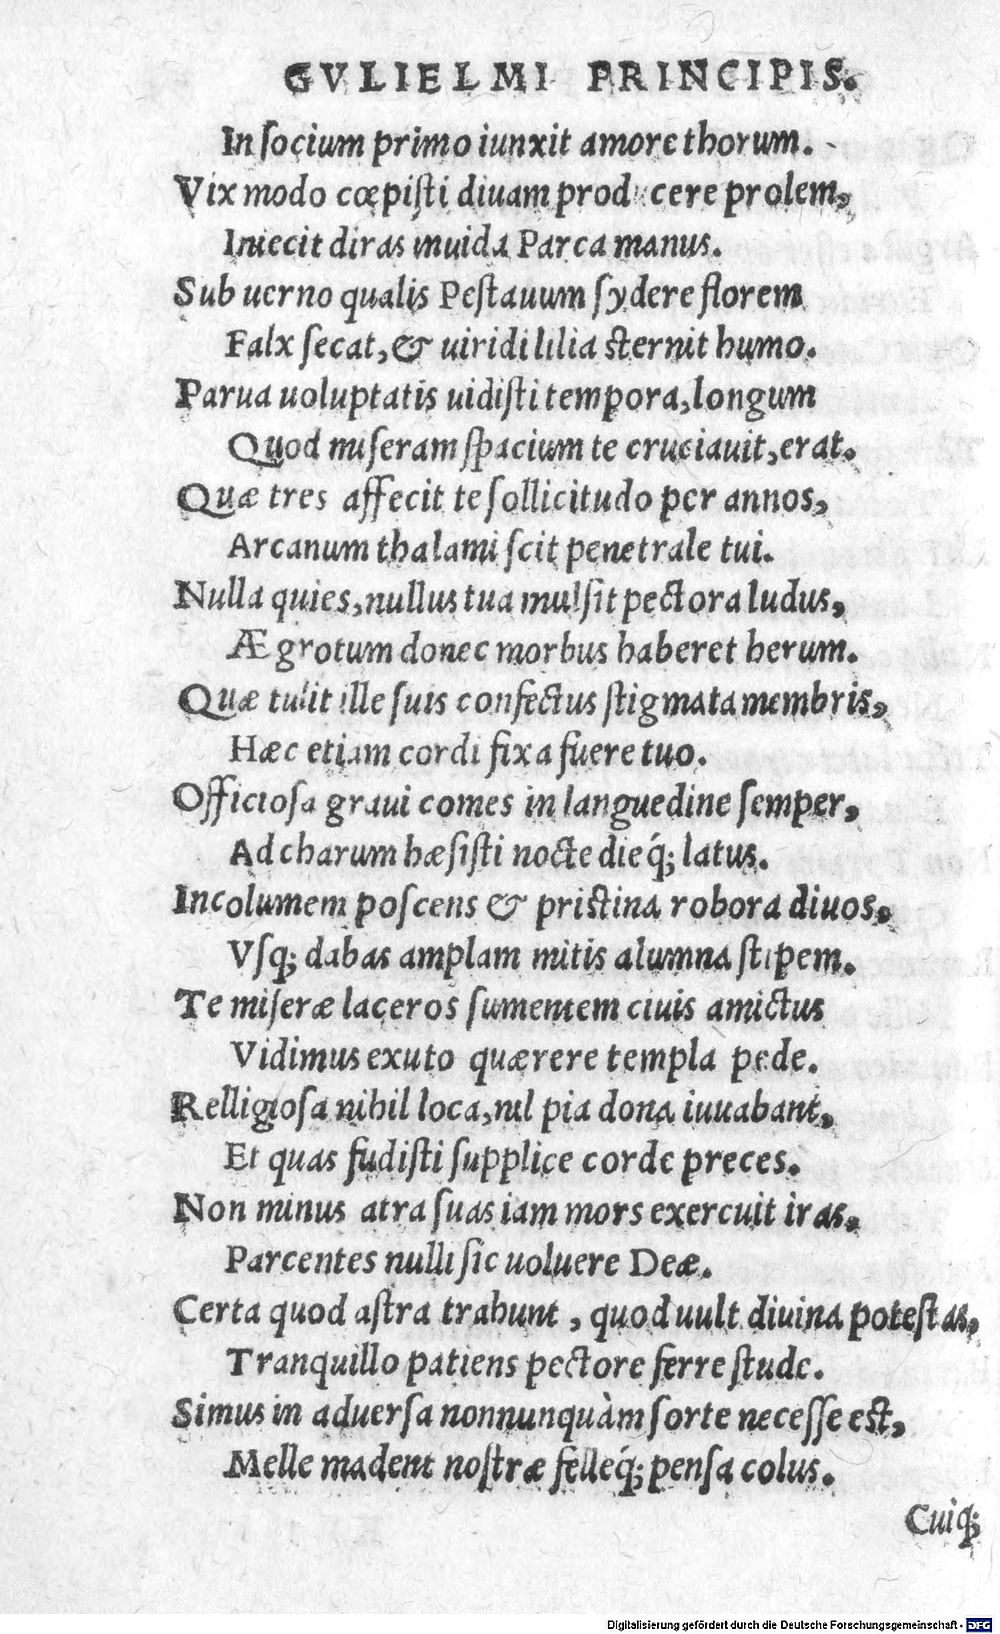 GVLIELMI PRINCIPIS.
In ſocium primo iunxit amore thorum.
Vix modo cœpiſti diuam producere prolem,
Iniecit diras inuida Parca manus.
Sub uerno qualis Peſtauum ſydere florem
Falx ſecat, & uiridi lilia ſternit humo.
Parua uoluptatis uidiſti tempora, longum
Quod miſeram ſpacium te cruciauit, erat.
Quæ tres affecit te ſollicitudo per annos,
Arcanum thalami ſcit penetrale tui.
Nulla quies, nullus tua mulſit pectora ludus,
Ægrotum donec morbus haberet herum.
Quæ tulit ille ſuis confectus ſtigmata membris,
Hæc etiam cordi fixa fuere tuo.
Officioſa graui comes in languedine ſemper,
Ad charum hæſiſti nocte dieq́; latus.
Incolumem poſcens & priſtina robora diuos,
Vſq; dabas amplam mitis alumna ſtipem.
Te miſeræ laceros ſumentem ciuis amictus
Vidimus exuto quærere templa pede.
Relligioſa nihil loca, nil pia dona iuuabant,
Et quas fudiſti ſupplice corde preces.
Non minus atra ſuas iam mors exercuit iras,
Parcentes nulli ſic uoluere Deæ.
Certa quod aſtra trahunt, quod uult diuina poteſtas,
Tranquillo patiens pectore ferre ſtude.
Simus in aduerſa nonnunquàm ſorte neceſſe eſt,
Melle madent noſtræ felleq́; penſa colus.
Cuiq;
Digitalisierung gefördert durch die Deutsche Forschungsgemeinschaft - DFG